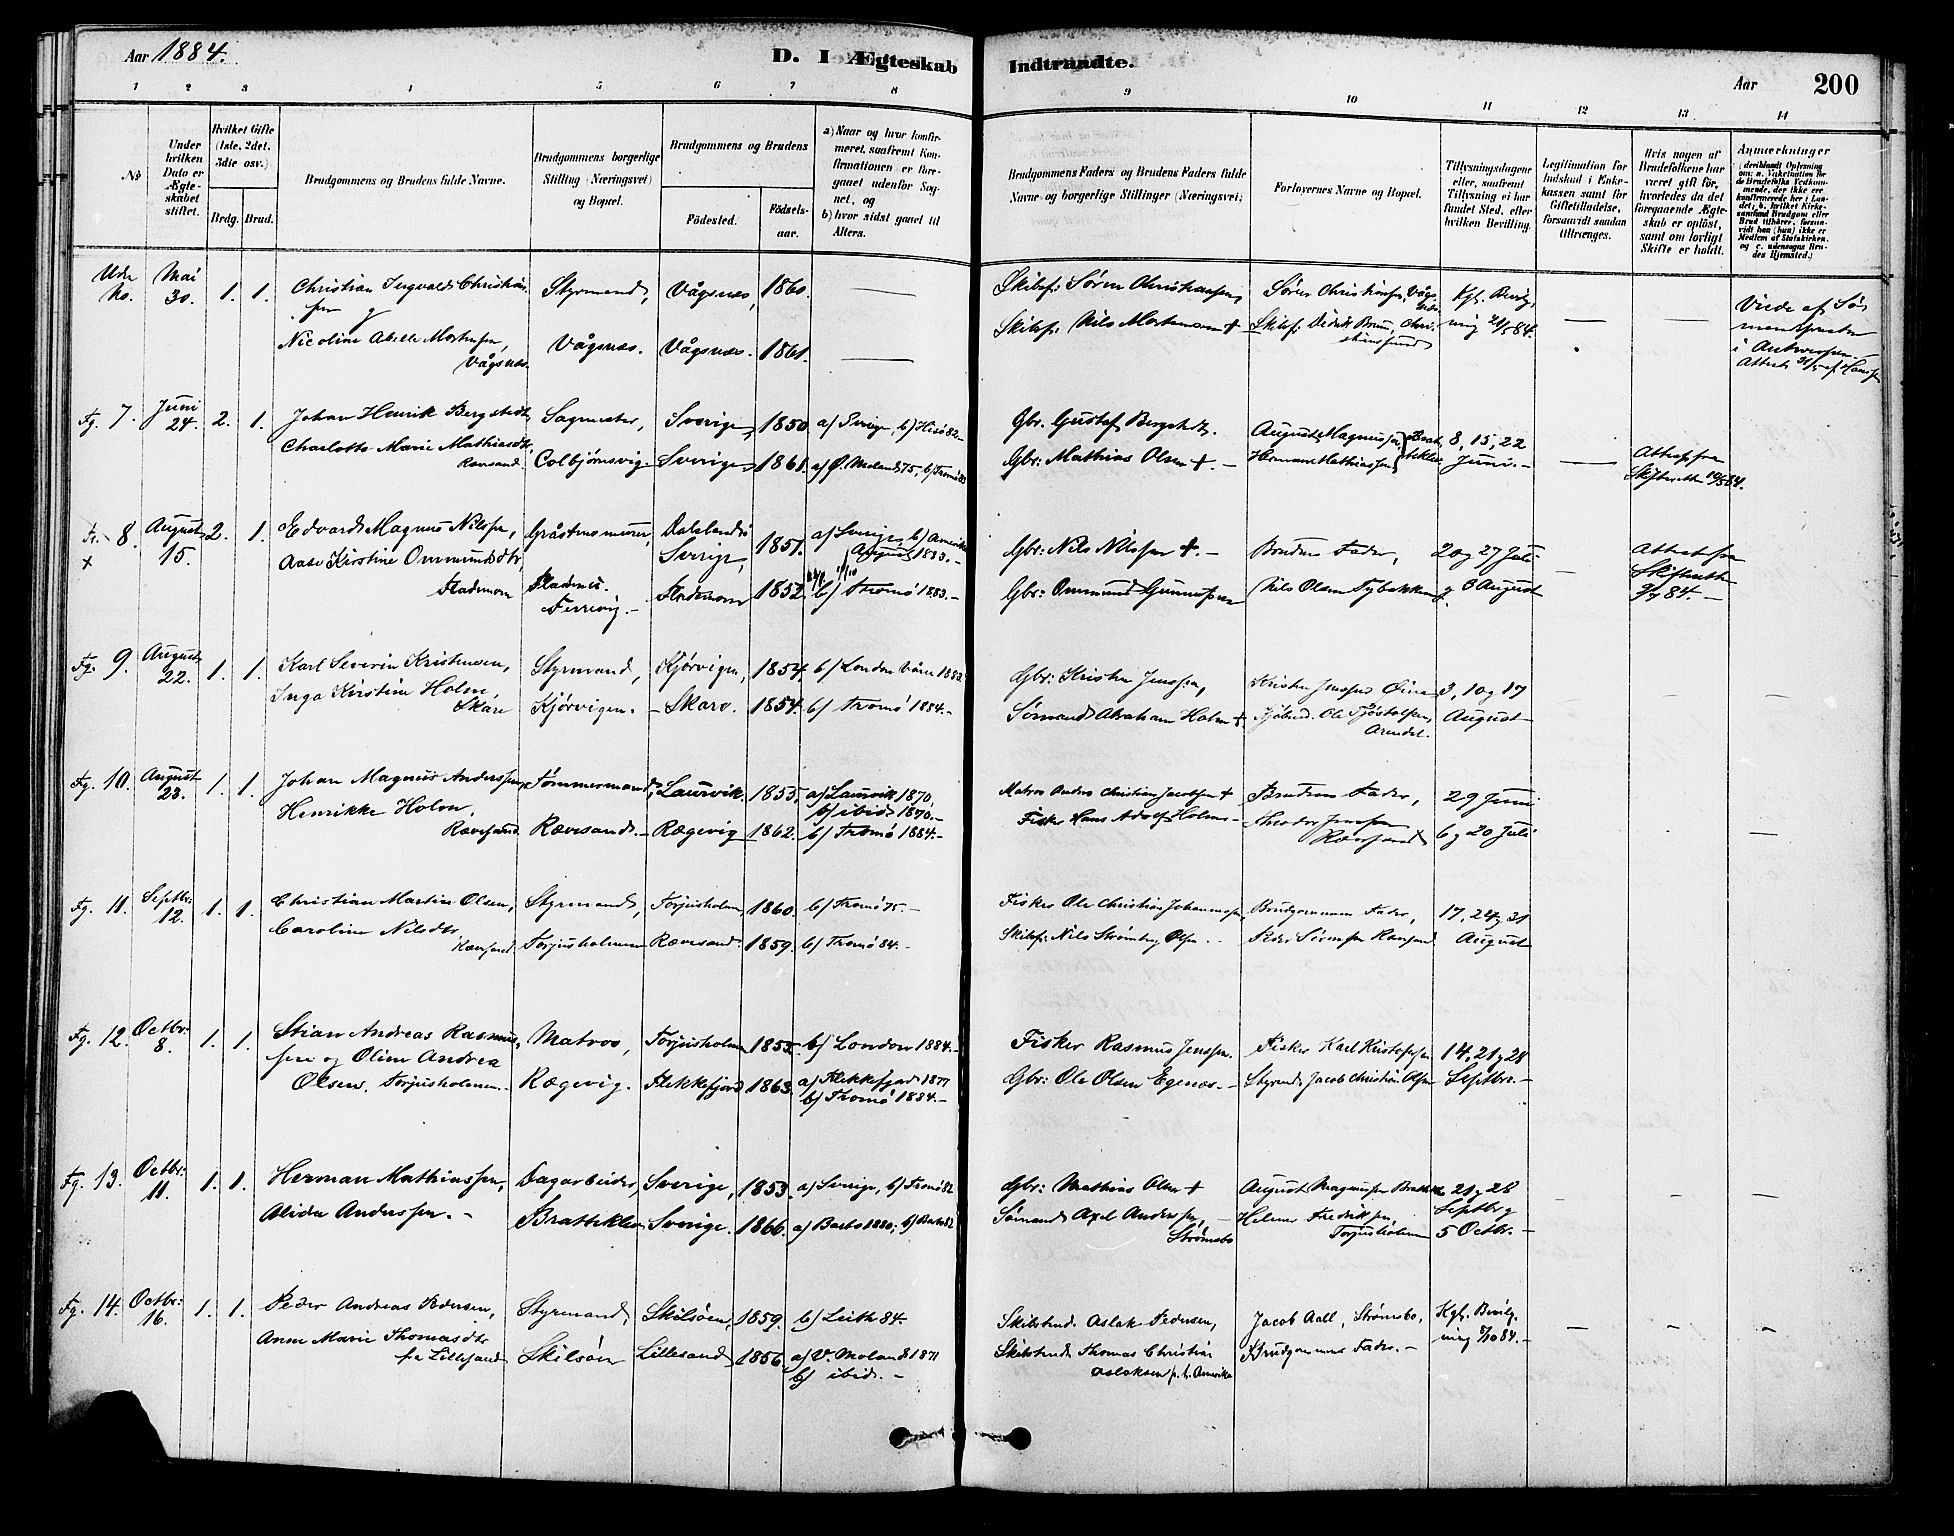 Aar 1884.
D. I Ægteskab Indtraadte.
Aar 200
1 2 3 4 5 6 7 8 9 10 11 12 13 14
No
Under hvilken Dato er Ægteskabet stiftet.
Hvilket Gifte (1ste, 2det, 3die osv.)
Brdg. Brud.
Brudgommens og Brudens fulde Navne.
Brudgommens borgerlige Stilling (Næringsvei) og Bopæl.
Brudgommens og Brudens
Fødested. Fødselsaar.
a) Naar og hvor konfirmeret, saafremt Konfirmationen er foregaaet udenfor Sognet, og
b) hvor sidst gaaet til Alters.
Brudgommens Faders og Brudens Faders fulde Navne og borgerlige Stillinger (Næringsvei).
Forlovernes Navne og Bopæl.
Tillysningsdagene eller, saafremt Tillysning ei har fundet Sted, efter hvilken Bevilling.
Legitimation for Indskud i Enkekassen samt for Giftetilladelse, forsaavidt saadan tiltrænges.
Hvis nogen af Brudefolkene har været gift før, hvorledes da det foregaaende Ægteskab er opløst, samt om lovligt Skifte er holdt.
Anmærkninger
Uden No. Mai 30. 1. 1. Christian Ingvald Christiansen og Styrmand, Vågsnæs, 1860. — Skibsf: Søren Christiansen, Søren Christiansen, Vågsnæs Kgl. Bevilgning 21/5 84. — — Viede af Sømandspræsten i Antwerpen.
Nicoline Abelle Mortensen, Vågsnæs. Vågsnæs. Vågsnæs. 1861. — Skibsf: Nils Mortensen + Skibsf: Didrik Bruun, Christianssund Attest 31/5 af Hansen
Fg. 7. Juni 24. 2. 1. Johan Henrik Bergstedt, Sagmester, Sverige, 1850. a) Sverige, b) Hisø 82.- Gbr. Gustaf Bergstedt. August Magnussen, Brattekleiv 8, 15, 22 Juni.-
Charlotte Marie Mathiasdtr, Rævesand Colbjørnsvig Sverige 1861. a) Ø. Moland 75. b) Tromø 83 Gbr: Mathias Olsen +. - Herman Mathiassen — Attest fra Skifteretten 10/5 84.
8. August 15. 2. 1. Edvard Magnus Nilsen, Gråstensmurer, Dalsland i Sverige, 1851. a) Sverige b) Amerika August 1883.- Gbr: Nils Nilssen +. - Brudens Fader, 20 og 27 Juli Attest fra Skifteretten
Aase Kirstine Ommundsdtr, Stademoen Stademoen. Færvig.- Stademoen 1852. b) Tromø 1883.- Gbr: Ommund Gunnufsen Nils Olsen Tybakken og 3 August — 84.-
Fg. 9. August 22. 1. 1. Karl Severin Kristensen, Styrmand, Kjørvigen, 1854. b) London Våren 1882. Gbr: Kristen Jenssen, Kristen Jenssen 3, 10 og 17 August
Inga Kirstine Holm, Skare Kjørvigen. - Skare. 1854. b) Tromø 1884.- Sømand Abraham Holm + Kjøbmd. Ole Arendal.
Fg. 10. August 23. 1. 1. Johan Magnus Anderssen, Tømmermand, Laurvik. 1855. a) Laurvik 1870, b) ibid. 1870.- Matros Anders Christian Jacobsen + Brudens Fader, 29 Juni
Henrikke Holm, Rævesand Rævesand.- Rægevig 1862. b) Tromø 1884.- Fisker Hans Adolf Holm - Theodor Jenssen Rævesand 6 og 20 Juli
Fg. 11. Septbr. 12. 1. 1. Christian Martin Olsen, Styrmand, Torjusholmen 1860. b) Tromø 75.- Fisker Ole Christian Johannessen, Brudgommens Fader, 17, 24 og 31 August
Caroline Nilsdtr, Rævesand. Torjusholmen Rævesand. 1859. b) Tromø 84.- Skibsf: Nils Strømberg Olsen - Peder Sørensen Rævesand
Fg. 12. Octbr: 8. 1. 1. Stian Andreas Rasmussen og Oline Andrea Matros, Torjusholmen 1855. b) London 1884.- Fisker Rasmus Jenssen. Fisker Karl Kristofersen 14, 21 og 28 Septbr.-
Olsen, Torjusholmen. Rægevig. Flekkefjord 1863. a) Flekkefjord 1877 b) Tromø 1884.- Gbr: Ole Olsen Egenæs.- Styrmd. Jacob Christian Olsen
Fg. 13. Octbr. 11. 1. 1. Herman Mathiassen, Dagarbeider, Sverige, 1853. a) Sverige, b) Tromø 82 Gbr: Mathias Olsen + August Magnussen Brattekleiv 21 og 28 Septbr og 5 Octbr.-
Alida Anderssen.- Brattekleiv Sverige. 1866. a) Barbo 1880, b) Barbo 82 Sømand Axel Anderssen, Strømsbo Helmer Fredriksen Torjusholmen
Fg. 14. Octbr: 16. 1. 1. Peder Andreas Pedersen, Styrmand, Skilsøen, 1859. b) Leith 84. Skibstmd. Aslak Pedersen, Jacob Aall, Strømsbo, Kgl. Bevilgning 84.-
Anne Marie Thomasdtr fra Lillesand Skilsøen Lillesand 1856. a) V. Moland 1871 b) ibid.- Skibstmd: Thomas Christian Aslaksen p. t. Amerika Brudgommens Fader.-